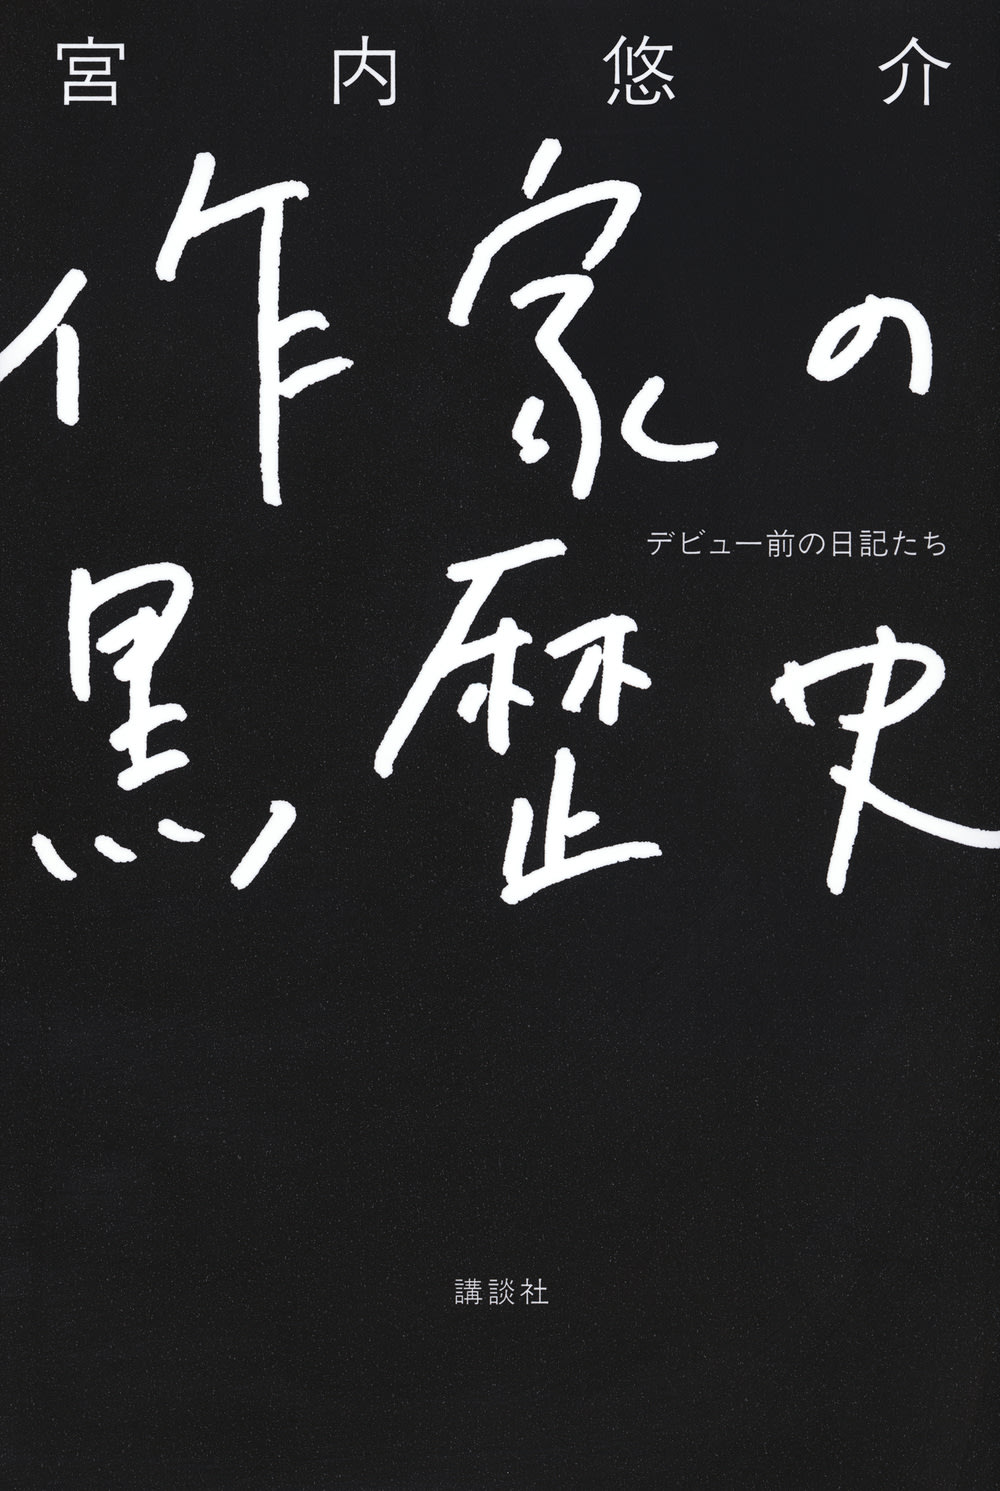 宮内悠介
作家の
デビュー前の日記たち
黒歴史
講談社